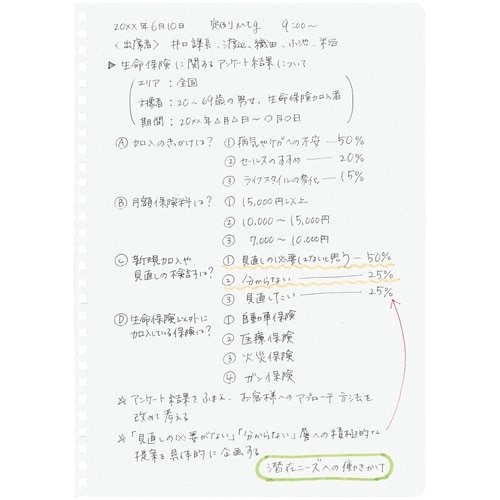 20XX年6月10日 定例Mtg 9:00〜
〈出席者〉 井口課長、澄江、織田、小池、半分
▶生命保険に関するアンケート結果について
エリア：全国
対象者：20〜69歳の男女、生命保険加入者
期間：20XX年△月△日〜〇月〇日
Ⓐ加入のきっかけは？ ①病気やケガへの不安 ― 50%
②セールスのすすめ ― 20%
③ライフスタイルの変化 ― 15%
Ⓑ月額保険料は？ ① 15,000円以上
② 10,000〜15,000円
③ 7,000〜10,000円
Ⓒ新規加入や ①見直しの必要はないと思う ― 50%
見直しの検討は？ ②分からない ― 25%
③見直したい ― 25%
Ⓓ生命保険以外に ①自動車保険
加入している保険は？ ②医療保険
③火災保険
④ガン保険
☆アンケート結果をふまえ、お客様へのアプローチ方法を
改めて考える
☆「見直しの必要がない」「分からない」層への積極的な
提案を具体的に企画する
潜在ニーズへの働きかけ